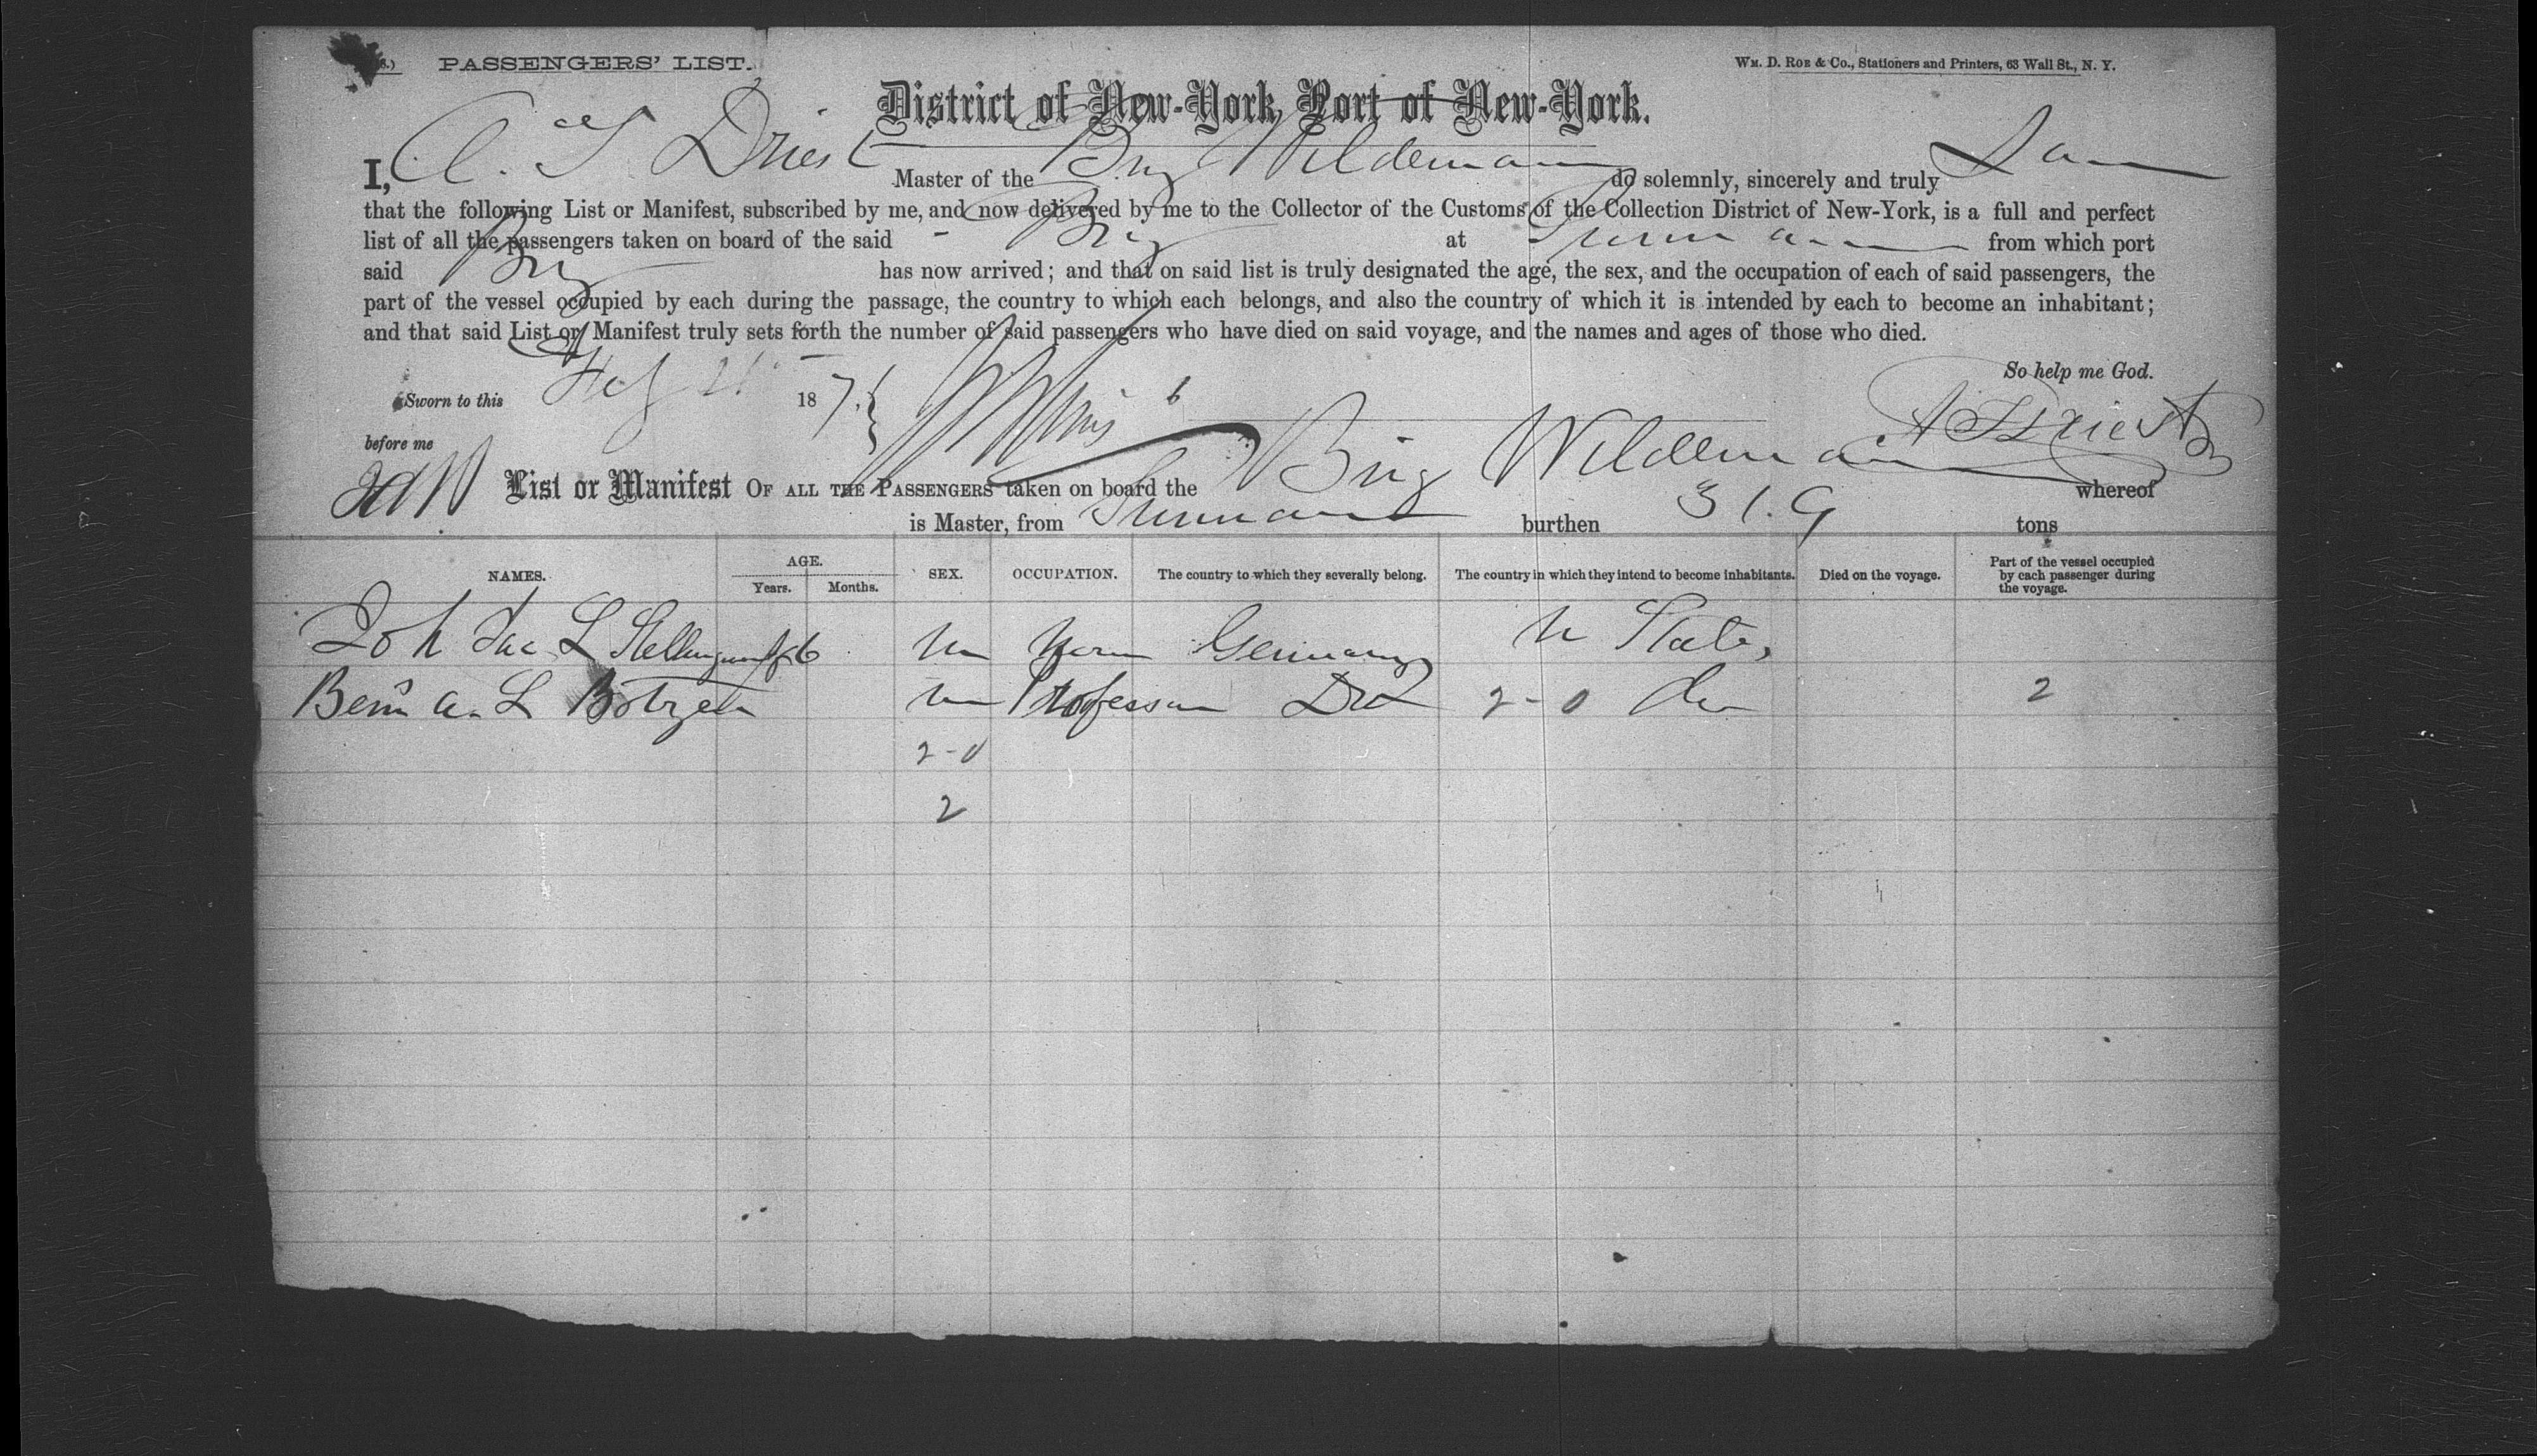 PASSENGERS' LIST.
Wm. D. Roe & Co., Stationers and Printers, 63 Wall St., N. Y.
District of New-York, Port of New-York.
I, A. S. Driest Master of the Brig Wildemann do solemnly, sincerely and truly
that the following List or Manifest, subscribed by me, and now delivered by me to the Collector of the Customs of the Collection District of New-York, is a full and perfect
list of all the passengers taken on board of the said Brig at from which port
said Brig has now arrived; and that on said list is truly designated the age, the sex, and the occupation of each of said passengers, the
part of the vessel occupied by each during the passage, the country to which each belongs, and also the country of which it is intended by each to become an inhabitant;
and that said List or Manifest truly sets forth the number of said passengers who have died on said voyage, and the names and ages of those who died.
So help me God.
Sworn to this 187
before me
List or Manifest OF ALL THE PASSENGERS taken on board the Brig Wildemann whereof
is Master, from burthen 319 tons
NAMES. AGE. SEX. OCCUPATION. The country to which they severally belong. The country in which they intend to become inhabitants. Died on the voyage. Part of the vessel occupied by each passenger during the voyage.
Years. Months.
Joh L m Germany U States
L Botzen m Professor 2-0 do 2
2-0
2